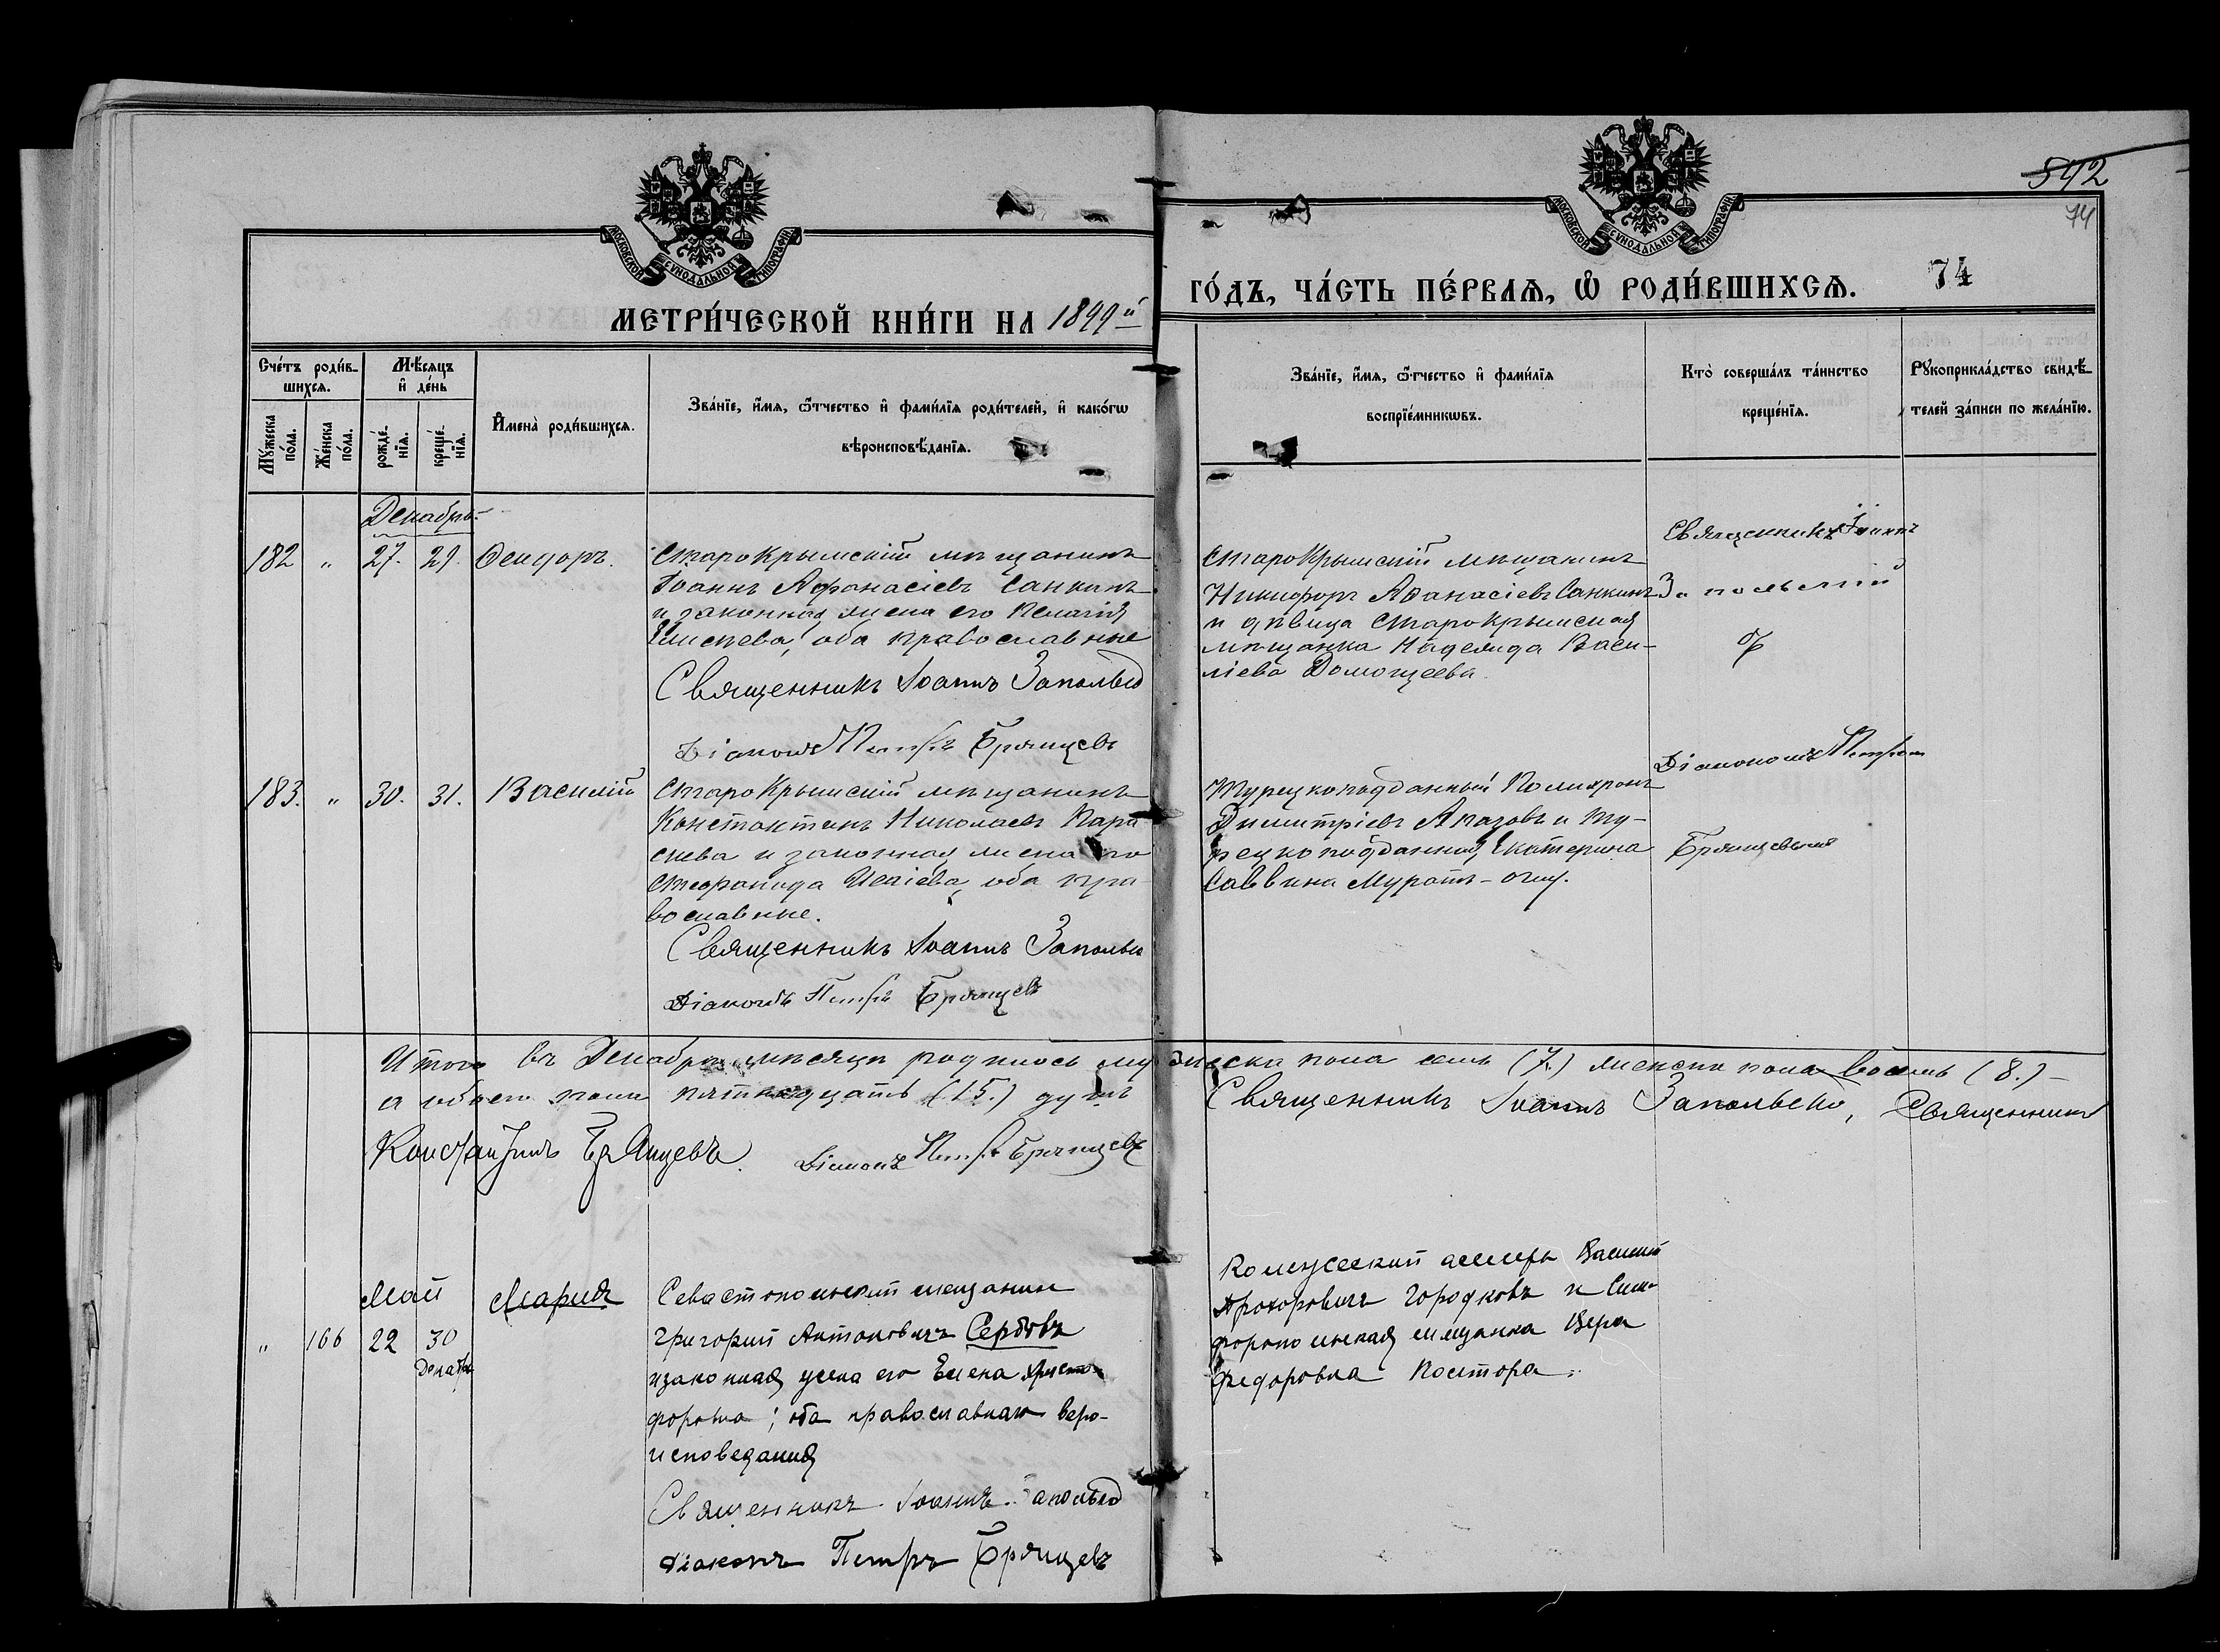 592
74
МОСКОВСКОЙ СѴНОДАЛЬНОЙ ТИПОГРАФІИ
МОСКОВСКОЙ СѴНОДАЛЬНОЙ ТИПОГРАФІИ
МЕТРИ́ЧЕСКОЙ КНИ́ГИ НА 1899й
ГО́ДЪ, ЧА́СТЬ ПЕ́РВАѦ, Ѡ РОДИ́ВШИХСѦ. 74
Сче́тъ роди́в-
шихсѧ.
Мꙋ́жеска
по́ла.
Же́нска
по́ла.
Мѣ́сѧцъ
и҆ де́нь
рожде́-
нїѧ.
креще́-
нїѧ.
И҆мена̀ роди́вшихсѧ.
Зва́нїе, и҆́мѧ, ѻ҆́тчество и҆ фами́лїѧ роди́телей, и҆ како́гѡ
вѣроисповѣ́данїѧ.
Зва́нїе, и҆́мѧ, ѻ҆́тчество и҆ фами́лїѧ
воспрїе́мникѡвъ.
Кто̀ соверша́лъ та́инство
креще́нїѧ.
Рꙋкоприкла́дство свидѣ́-
телей за́писи по жела́нїю.
Декабрь
182 " 27. 29. Ѳеодоръ.
СтароКрымскій мѣщанинъ
Іоаннъ Афанасіевъ Санкинъ
и законная жена его Пелагія
оба православные
Священникъ Іоаннъ Запольск
Діаконъ Петръ Брянцевъ
СтароКрымскій мѣщанинъ
Никифоръ Аѳанасіевъ Санкинъ
и дѣвица СтароКрымская
мѣщанка Надежда Васи-
ліева
Священникъ Іоаннъ
Запольскій
183. " 30. 31. Василій
СтароКрымскій мѣщанинъ
Константинъ Николаевъ Кара
и законная жена его
Стефанида оба пра
вославные.
Священникъ Іоаннъ Запольск
Діаконъ Петръ Брянцевъ
Турецкоподданный Полихронъ
Димитріевъ и ту-
рецкоподданная Екатерина
Саввина Муратъ-оглу.
Діакономъ Петром
Брянцевымъ
Итого въ Декабрѣ мѣсяцѣ родилось мужеска пола семь (7.) женска пола восемь (8.)-
а обоего пола пятнадцать (15.) душъ Священникъ Іоаннъ Запольско, Священникъ
Константинъ Брянцевъ. Діаконъ Петръ Брянцевъ
" 166 Май 22 30 Декабр Мария
Севастопольский мещанин
Григорий Антонович Сербовъ
и законная жена его Елена Христо-
форовна; оба православнаго веро-
исповедания
Священникъ Іоаннъ Запольск
Діаконъ Петръ Брянцевъ
Василий
Прохорович Городковъ и Сим-
феропольская мещанка Вера
Федоровна